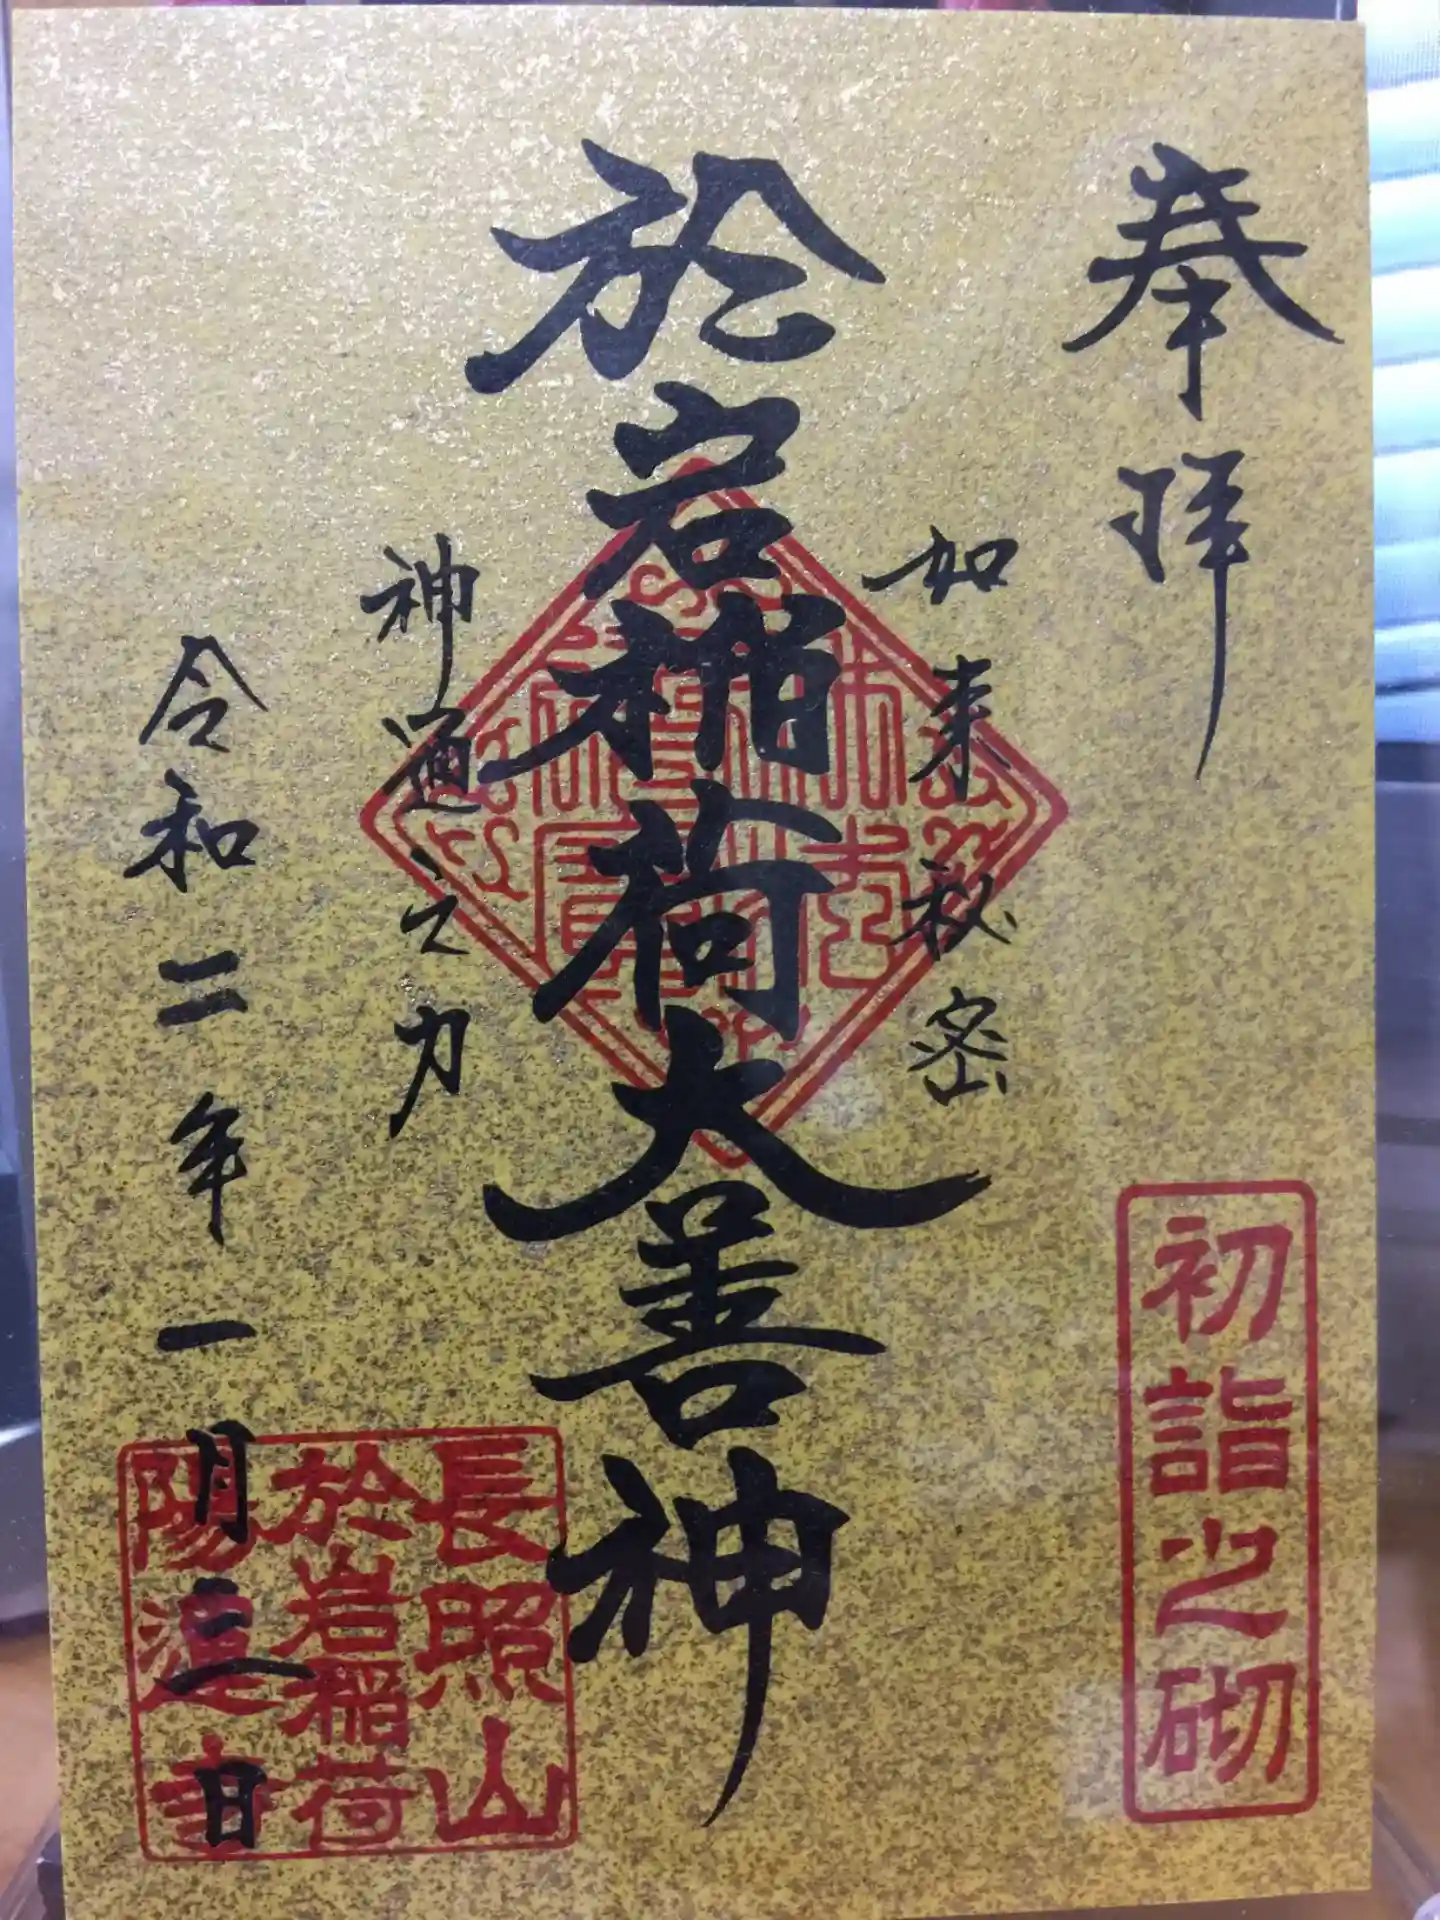 奉拝
初詣之砌
如来秘密
於岩稲荷大善神
神通之力
令和二年一月二日
長照山
於岩稲荷
陽運寺